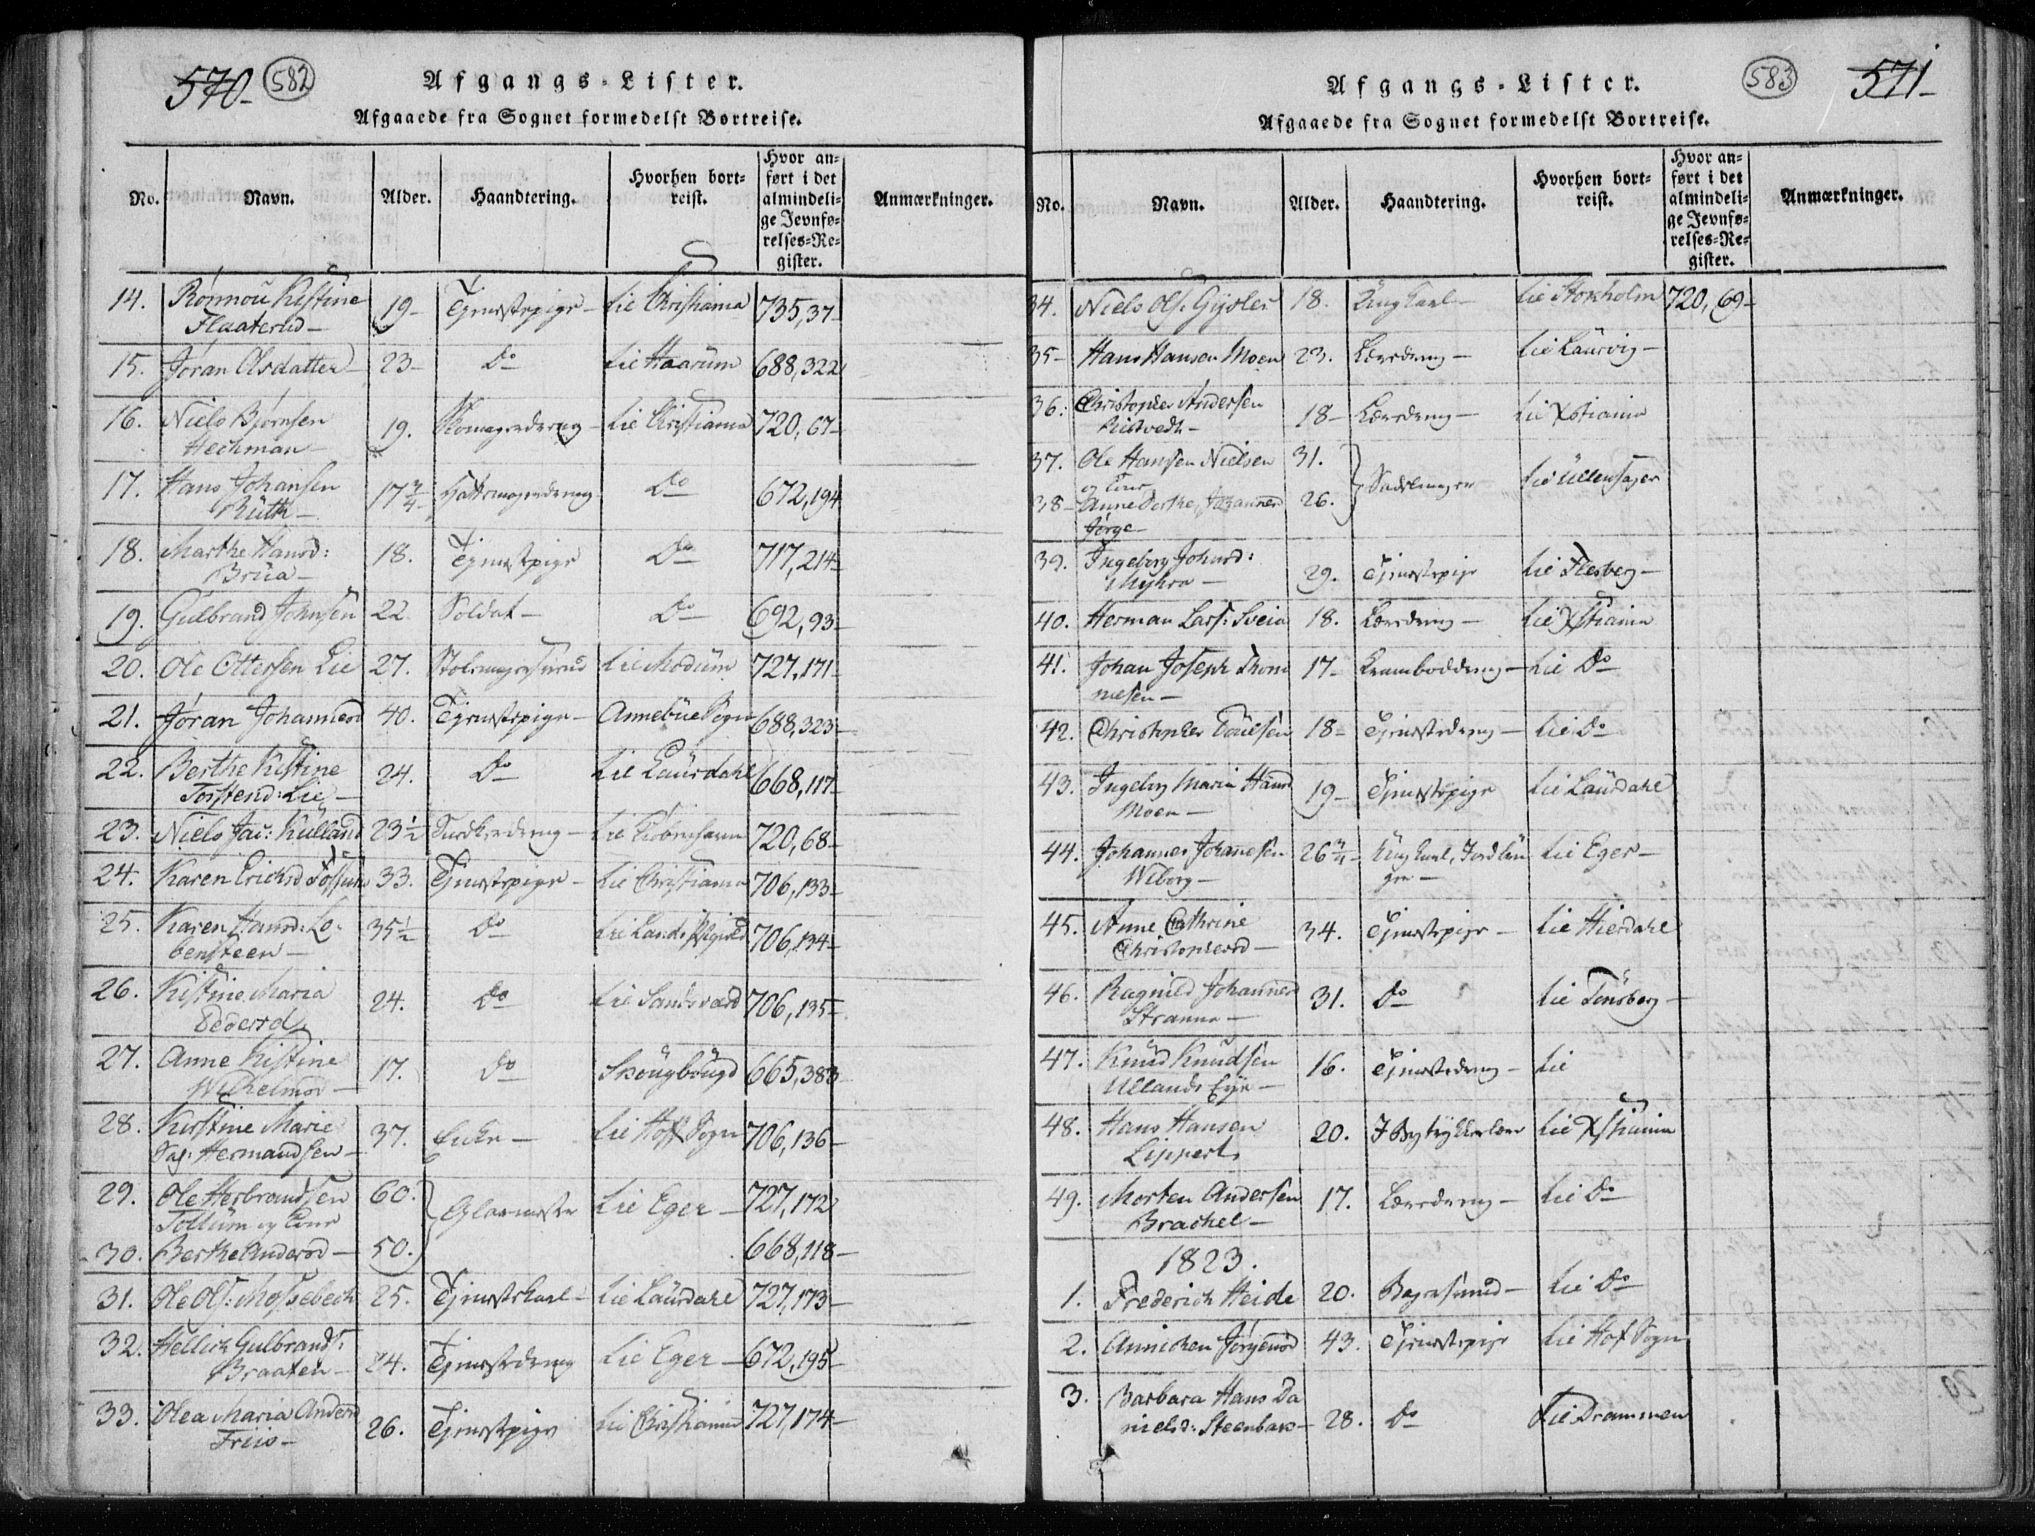 570 582
Afgangs-Lister.
Afgaaede fra Sognet formedelst Bortreise.
No. Navn. Alder. Haandtering. Hvorhen bortreist. Hvor anført i det almindelige Jevnførelses-Register. Anmærkninger.
14. Rønnou Kistine 19- Tjenestepige- til Christiania 735,37-
Flaaterud-
15. Jøran Olsdatter- 23- Do til Haarum 688,322
16. Niels Bjørnsen 19. Skomagerdreng- til Christiania 720,67-
Hechman-
17. Hans Johansen 17¾- Hattemagerdreng Do 672,194
Ruth-
18. Marthe Hansd: 18. Tjenestepige Do 717,214-
Brua-
19. Gulbrand Johnsen 22 Soldat- Do 692,93-
20. Ole Ottersen Lie 27. til Modum 727,171-
21. Jøran Johannesd 40. Tjenestepige- Annebue Sogn 688,323-
22. Berthe Kistine 24. Do til Laurdahl 668,117-
Torstend: Lie-
23. Niels Jac: Kulland 23½ Snedkerdreng- til Kiøbenhavn 720,68-
24. Karen Ericksd Fossum 33. Tjenestepige- til Christiania 706,133-
25. Karen Hansd: Lo- 35½ Do til Lands 706,134-
bensteen-
26. Kistine Maria 24. Do til Sandsværd 706,135-
Pedersd
27. Anne Kistine 17. Do Skougbøugd 665,383-
Wilhelmsd-
28. Kirstine Marie 37. Enke- til Hoff Sogn 706,136-
Sal: Hermandsen-
29. Ole Herbrandsen 60. Glasmester til Eger- 727,172
Tollum og Kone
30. Berthe Andersd- 50. 668,118-
31. Ole Ols: Mossebech 25. Tjenestekarl- til Laurdahl 727,173-
32. Hellich Gulbrands: 24. Tjenestedreng til Eger- 672,195-
Braaten-
33. Olea Maria Andersd 26. Tjenestepige til Christiania 727,174-
Friis-
583 571
Afgangs-Lister.
Afgaaede fra Sognet formedelst Bortreise.
No. Navn. Alder. Haandtering. Hvorhen bortreist. Hvor anført i det almindelige Jevnførelses-Register. Anmærkninger.
34. Niels Ols. Gisler 18. Ung Karl- til Stokholm 720,69-
35- Hans Hansen Moen 23. Læredreng- til Laurvig-
36. Christopher Andersen 18- Læredreng- til Xstiania
Kistvedt-
37. Ole Hansen Nielsen 31. Sadelmager til Ullensager
og Kone
38- Anne Dorthe, Johannes 26.
Jørge-
39. Ingeborg Johnsd: 29. Tjenestepige til Flesberg-
Myhra-
40. Herman Lars: Sveia 18. Læredreng- til Xstiania
41. Johan Joseph Thom 17- Kramboddreng- til Do
mesen-
42. Christopher Poulsen 18- Tjenestedreng- til Do
43. Ingeborg Maria Hansd 19- Tjenestepige til Laurdahl
Moen-
44. Johannes Johanesen 26¾- Ung Karl, til Eger-
Wiborg-
45. Anne Cathrine 34. Tjenestepige- til Hierdahl
Christophersd-
46. Ragnild Johannesd 31. Do til Tønsberg-
Stranna-
47. Knud Knudsen 16. Tjenestedreng- til
Ullands Eye-
48. Hans Hansen 20. til Xstiania
Lippert,
49. Morten Andersen 17. Læredreng- til Do
Brachel-
1823.
1. Frederich Heide 20. Bagersvend- til Do
2. Annichen Jørgensd 43. Tjenestepige til Hof Sogn
3. Barbara Hans Da 28. Do Til Drammen
nielsd: Steenbak-